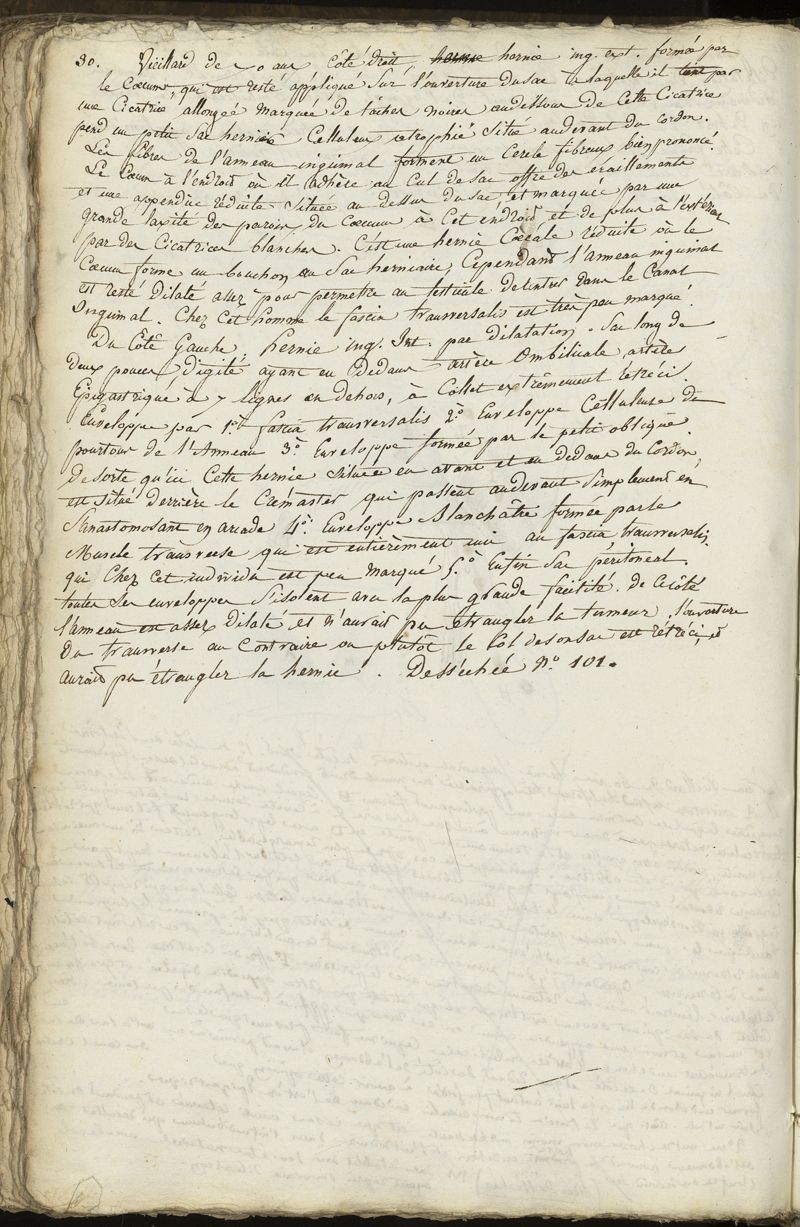 30. Vieillard de 70 ans côté droit, hernie hernie ing. ext. formée par
le Cœcum, qui est resté appliqué Sur l'ouverture du sac à laquelle il tient par
une Cicatrice allongée marquée de tâches noires audessous de Cette Cicatrice
pend un petit Sac herniaire Celluleux atrophié Situé audevant du Cordon.
Les fibres de l'anneau inguinal forment un Cercle fibreux bien prononcé.
Le Cœcum à l'endroit où il adhère au Cul de sac offre des éraillements
et une appendice réduite située au dessus du sac et marquée par une
grande laxité des parois du Cœcum à Cet endroit et de plus à l'extérieur
par des Cicatrices blanches. C'est une hernie Cœcale réduite où le
Cœcum forme un bouchon au Sac herniaire, Cependant l'anneau inguinal
est resté Dilaté assez pour permettre au testicule de rentrer dans le Canal
Inguinal. Chez Cet homme le fascia transversalis est très peu marqué.
Du Côté Gauche, hernie ing. Int. par dilatation. Sac long de
Deux pouces, Digité, ayant en Dedans artère Ombilicale, artère
Epigastrique à 7 lignes en dehors, à Collet extrêmement rétréci.
Enveloppe par 1.° fascia transversalis 2.° Enveloppe Celluleuse du
pourtour de l'Anneau 3.° Enveloppe formée par le petit oblique
De sorte qu'ici Cette hernie située en avant et en dedans du Cordon,
est situé derrière le Crémaster qui passent audevant Simplement en
S'anastomosant en arcade 4.° Enveloppe Blanchâtre formée par le
Muscle transverse qui est entièrement uni au fascia transversalis
qui Chez cet individu est peu marqué 5.° Enfin Sac péritonéal.
toutes Ses enveloppes S'isolent avec la plus grande facilité. de Ce côté
l'anneau est assez Dilaté et n'aurait pu étrangler la tumeur. l'ouverture
Du transverse au Contraire ou plutôt le Col de son sac est rétréci, et
aurait pu étrangler la hernie. Desséchée N.° 101.